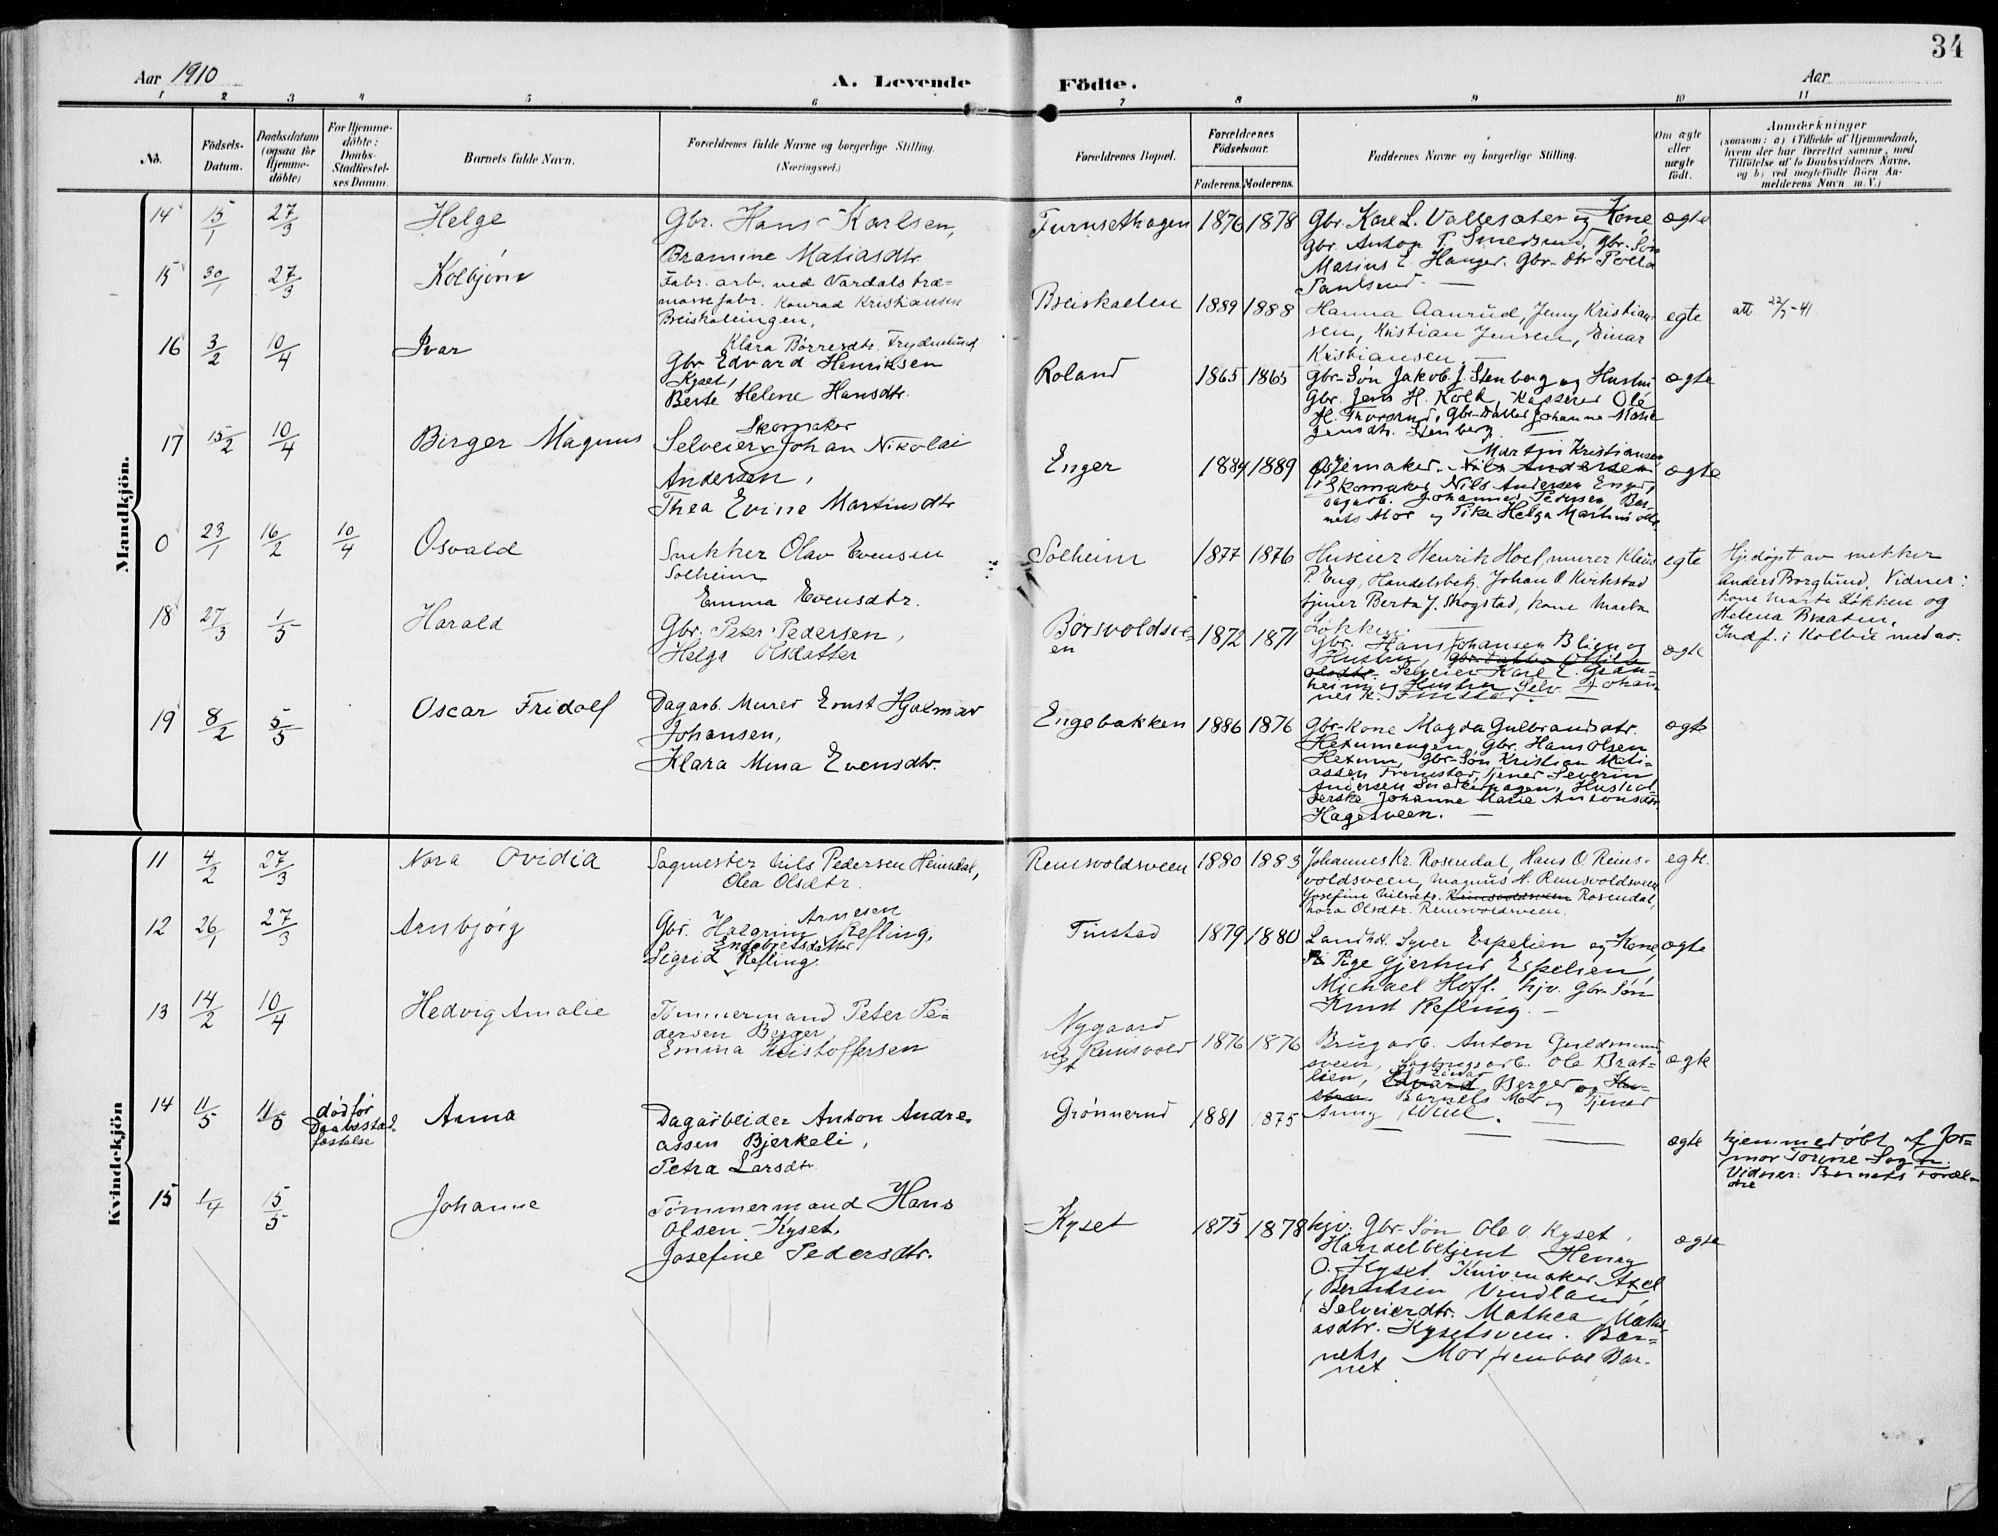 34
Aar 1910
A. Levende
Födte.
Aar
1 2 3 4 5 6 7 8 9 10 11
No.
Födsels-
Datum.
Daabsdatum
(ogsaa for
Hjemme-
döbte)
For Hjemme-
döbte:
Daabs-
Stadfæstel-
ses Datum.
Barnets fulde Navn.
Forældrenes fulde Navne og borgerlige Stilling.
(Næringsvei.)
Forældrenes Bopæl.
Forældrenes
Födselsaar.
Faderens. Moderens.
Faddernes Navne og borgerlige Stilling.
Om ægte
eller
uægte
födt.
Anmærkninger
(saasom: a) i Tilfælde af Hjemmedaab,
hvem der har forrettet samme, med
Tilföielse af to Daabsvidners Navne,
og b) ved uægtefödte Börn An-
melderens Navn m. V.)
Mandkjön.
14 15/1 27/3 Helge
Gbr. Hans Karlsen,
Bramine Matiasdtr.
Furusethagen 1876 1878
Gbr. Karl L. Vallesæter og Kone
Gbr. Anton P. Smedsrud, Gbr-Søn
Marius E. Hanger. Gbr-dtr
Paulsrud. —
ægte
15 30/1 27/3 Kolbjørn
Fabr. arb. ved Vardals træ-
massefabr. Konrad Kristiansen
Breiskallingen,
Klara Børresdtr. Frydenlund
Breiskallen 1889 1888
Hanna Aanrud, Jenny Kristian-
sen, Kristian Jensen, Einar
Kristiansen. —
egte
att 22/5-41
16 3/2 10/4 Ivar
Gbr Edvard Henriksen
Kyset,
Berte Helene Hansdtr.
Roland 1865 1865
Gbr-Søn Jakob J. Stenberg og Hustru
Gbr. Jens H. Kolk, Kasserer Ole
H. Thorsrud, Gbr-Datter Johanne Marie
Jensdtr. Stenberg —
ægte
17 15/2 10/4 Birger Magnus
Skomaker
Selveier Johan Nikolai
Andersen,
Thea Evine Martinsdtr
Enger 1884 1889
Martin Kristiansen
Nils Andersen
Skomaker Nils Andersen Enger,
Dagarb. Johannes Pedersen, Bar-
nets Mor og Pike Helga Martinsdtr.
ægte
0 23/1 16/2 10/4 Osvald
Snekker Olav Evensen
Solheim
Emma Evensdtr.
Solheim 1877 1876
Huseier Henrik Hoel, murer Klaus
P. Eng, Handelsbetj. Johan O Kirkstad
tjener Berta J. Skogstad, kone Marta
Løkken.
egte
Hjedøpt av snekker
Anders Borglund, Vidner:
kone Marte Løkken og
Helena Braaten,
Indf. i Kolbu med av.
18 27/3 1/5 Harald
Gbr. Peter Pedersen,
Helga Olsdatter
Børsvoldsve-
en 1872 1871
Gbr. Hans Johansen Blien og
Hustru, Gbr-Datter Ottilie
Olsdtr. Selveier Karl E. Gran-
heim og Hustru Selv. Johan-
nes K. Finstad. —
ægte
19 8/2 5/5 Oscar Fridolf
Dagarb. Murer Ernst Hjalmar
Johansen,
Klara Mina Evensdtr.
Engebakken 1886 1876
Gbr-Kone Magda Gulbrandsdtr.
Hexumengen, Gbr. Hans Olsen
Hexum, Gbr-Søn Kristian Mati-
assen Finnstad, Tjener Severin
Andersen Snedkerhagen, Hushol-
derske Johanne Marie Antonsdtr
Hagesveen. —
ægte
Kvindekjön
11 4/2 27/3 Nora Ovidia
Sagmester Nils Pedersen Heimdal,
Olea Olsdtr.
Reinsvoldsveen 1880 1883
Johannes Kr. Rosendal, Hans O. Reins-
voldsveen, Magnus H. Reinsvoldsveen
Josefine Nilsdtr. Reinsvoldsveen Rosendal,
Nora Olsdtr. Reinsvoldsveen.
egte.
12 26/1 27/3 Arnbjørg
Arnesen
Gbr. Halgrim Refling,
Engebretsdatter
Sigrid Refling.
Finstad 1879 1880
Landhdl. Syver Espelien og Kone,
Pige Gjertrud Espelien,
Michael Hoff. hjv. Gbr-Søn
Knud Refling. —
ægte
13 14/2 10/4 Hedvig Amalie
Tømmermand Peter Pe-
dersen Berger,
Emma Kristoffersen
Nygaard
ved Reinsvold
st 1876 1876
Brugarb. Anton Guldsmed-
sveen, Sagbrugsarb. Ole Brat-
lien, Edvard Einar Berger og Hu-
stru Barnets Mor og Tjener
Anny .
ægte
14 11/5 11/5 død før
Daabsstad-
fæstelse
Anna
Dagarbeider Anton Andre-
assen Bjerkeli,
Petra Larsdtr.
Grønnerud 1881 1875
— — —
ægte
hjemmedøbt af Jor-
mor Torine Sogn.
Vidner: Barnets Foræl-
dre
15 1/4 15/5 Johanne
Tømmermand Hans
Olsen Kyset,
Josefine Pedersdtr.
Kyset 1875 1878
hjv. Gbr-Søn Ole O. Kyset,
Handelbetjent Henry
O. Kyset, Knivmaker Axel
Berntsen Vindland,
Selveierdtr. Mathea Mati-
asdtr. Kysetsveen. Bar-
nets Mor frembar Bar-
net
ægte